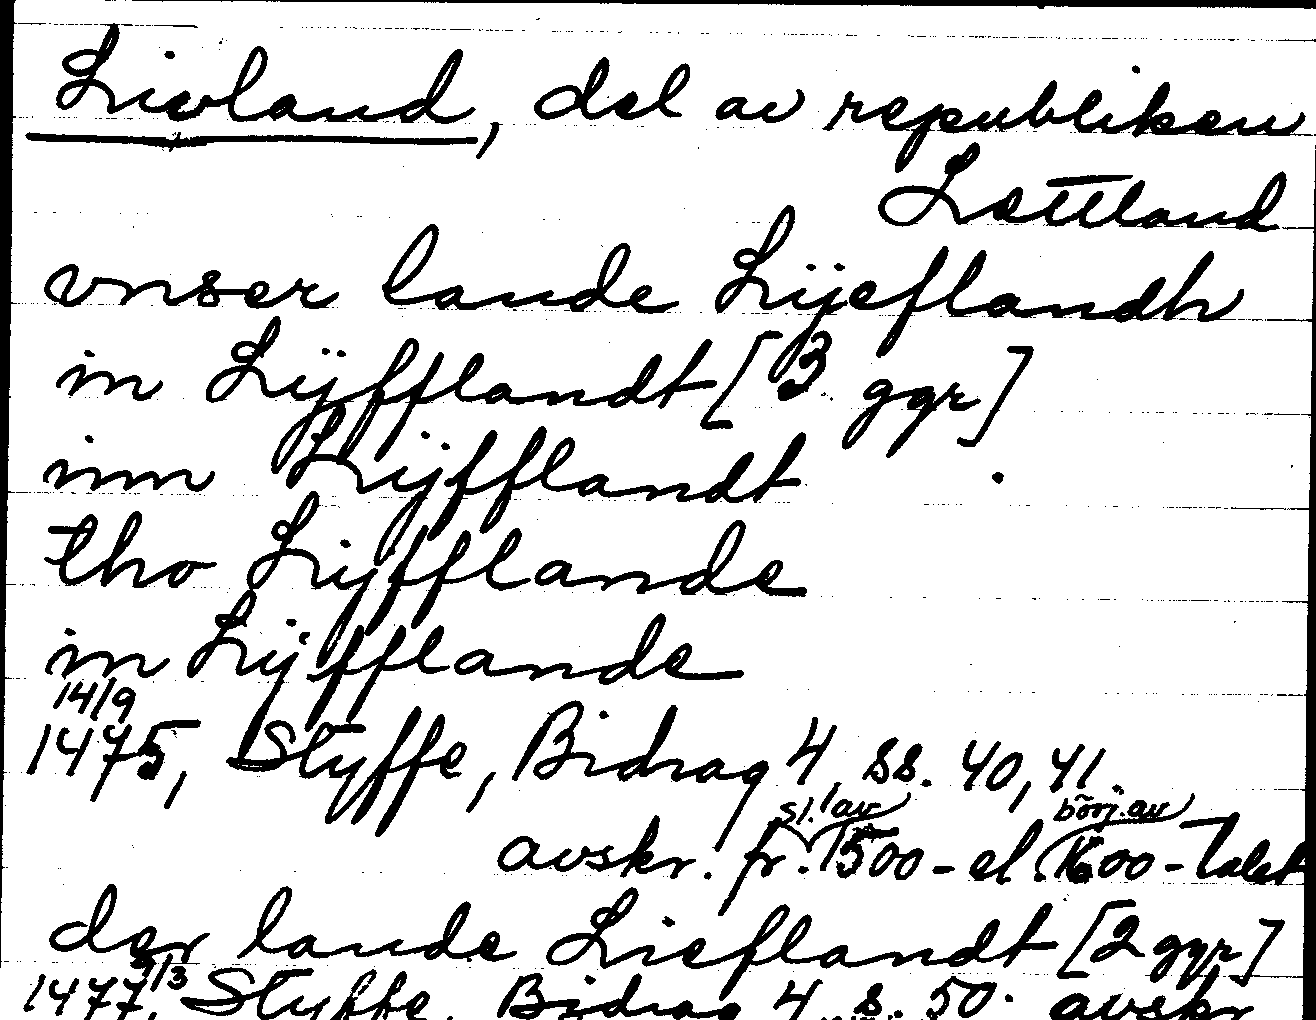 Livland, del av republiken
Lettland
vnser lande Lijeflandh
in Lÿfflandt [3 ggr]
inn Lÿfflandt
tho Lijfflande
in Lÿfflande
14/9
1475, Styffe, Bidrag 4, ss. 40, 41.
sl. av börj. av
avskr. fr. 1500- el. 1600-talet
der lande Lieflandt [2 ggr]
1477 3/3, Styffe, Bidrag 4, s. 50. avskr